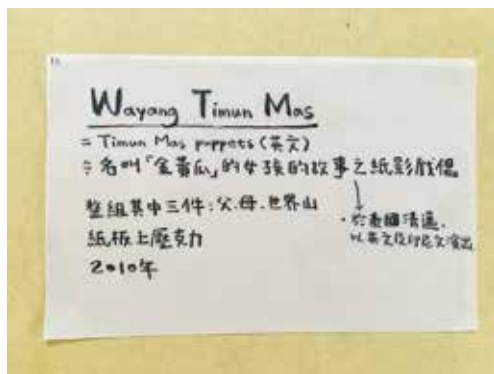 Wayang Timun Mas
= Timun Mas puppets (英文)
= 名叫「金黃瓜」的女孩的故事之紙影戲偶
整組其中三件：父、母、世界山
紙板上壓克力
2010年
以英文及印尼文演出